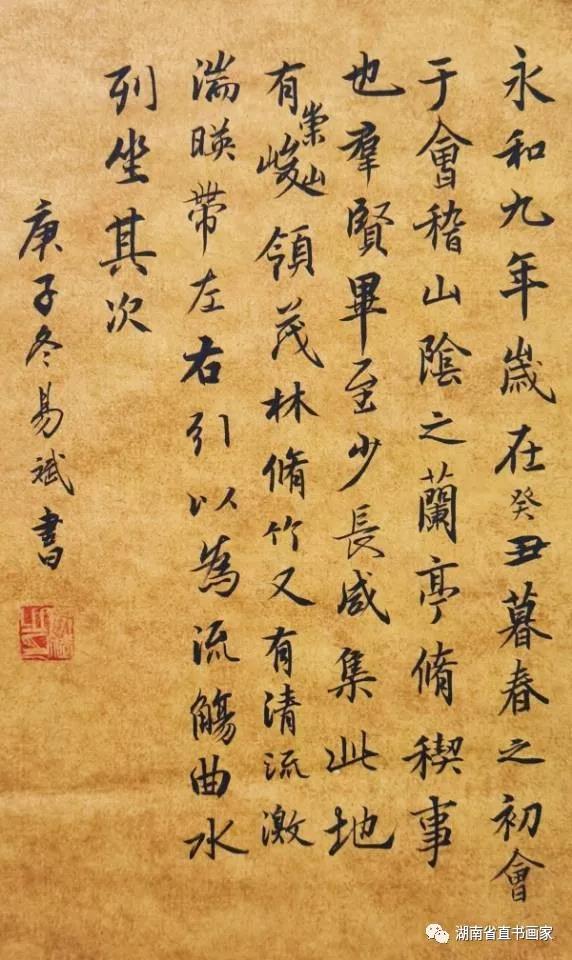 永和九年歲在癸丑暮春之初會
于會稽山陰之蘭亭脩稧事
也羣賢畢至少長咸集此地
有崇山峻領茂林脩竹又有清流激
湍暎帶左右引以為流觴曲水
列坐其次
庚子冬易斌書
湖南省直书画家